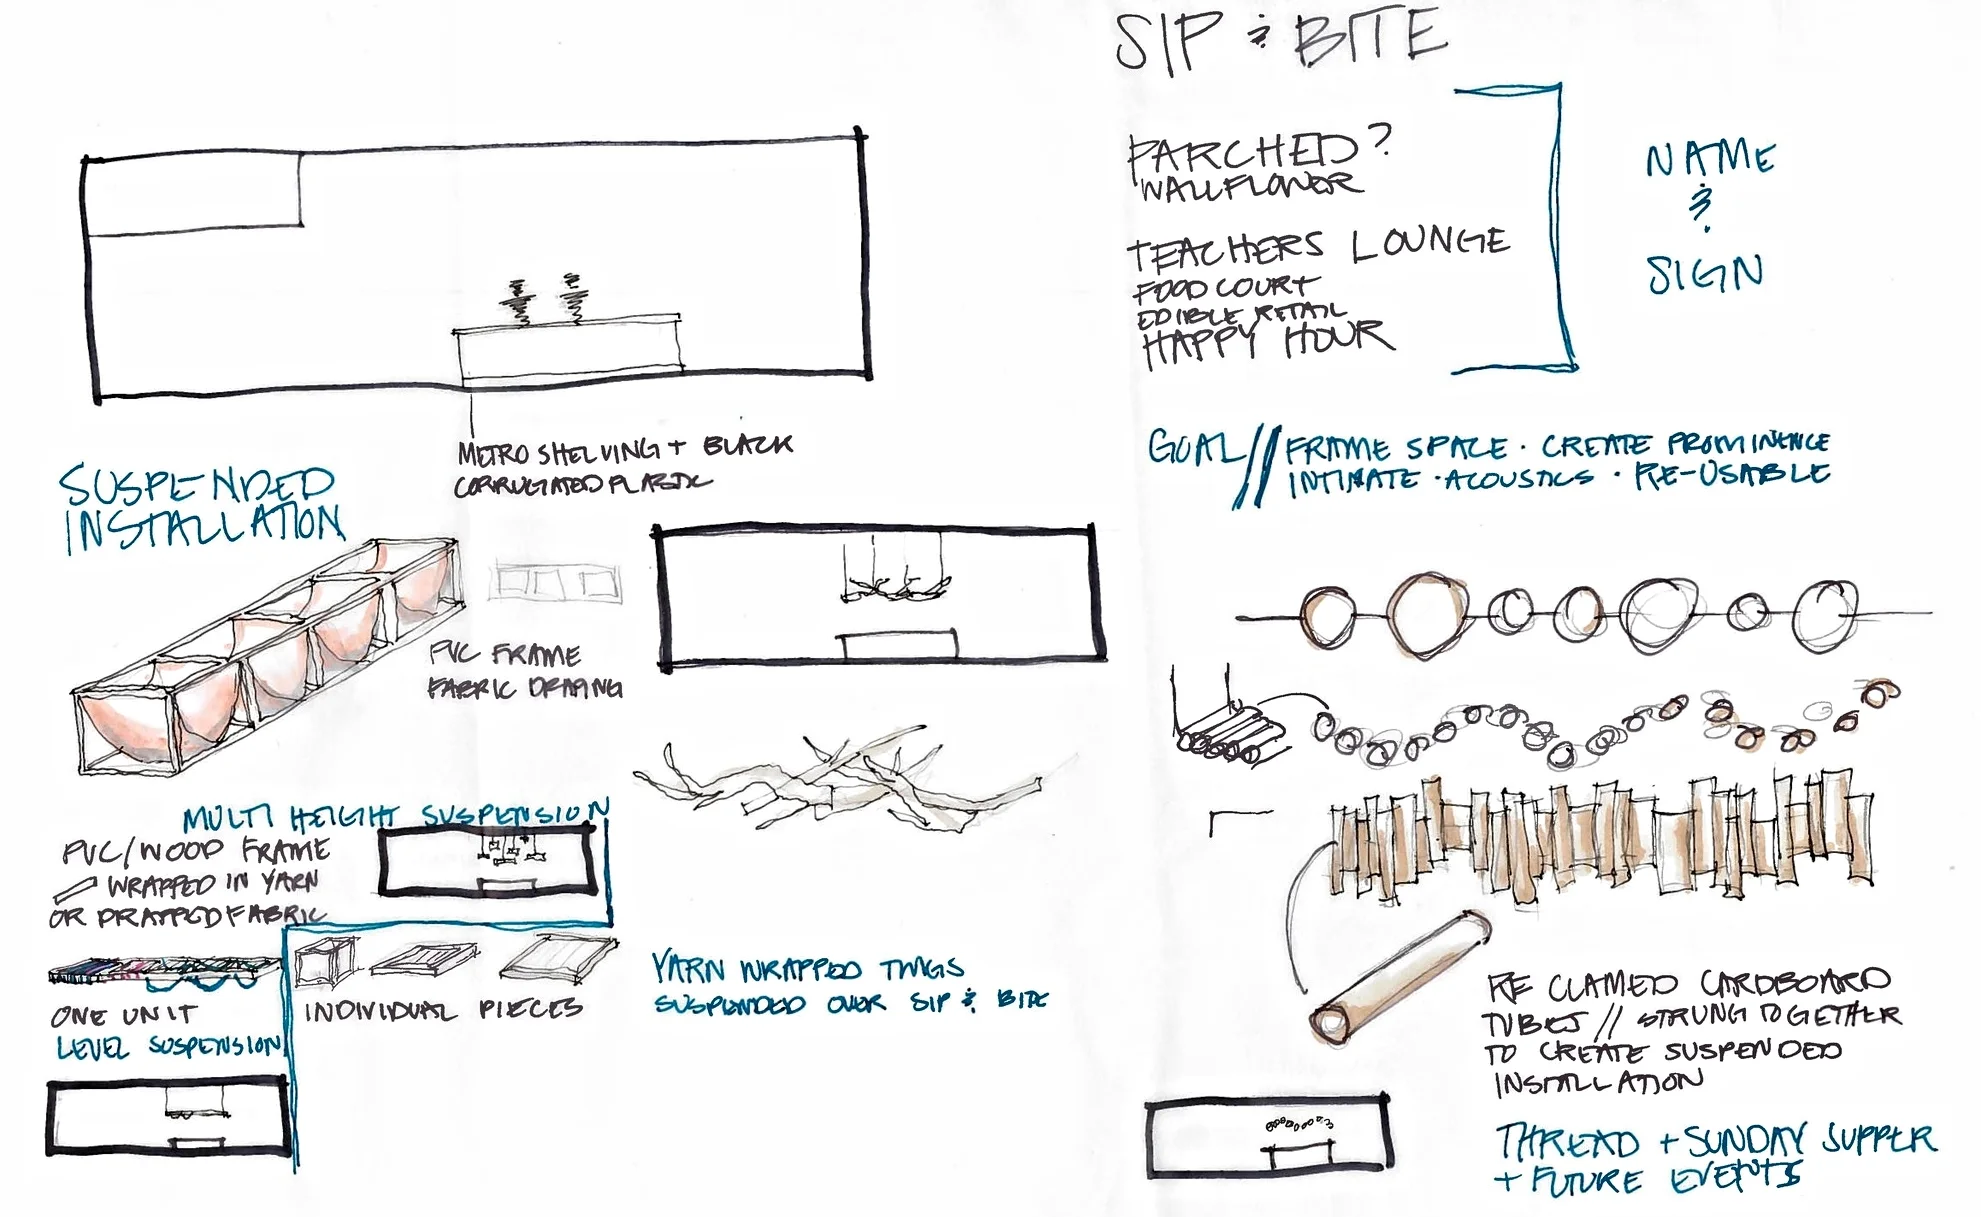 SIP & BITE
PARCHED?
WALLFLOWER
TEACHERS LOUNGE
FOOD COURT
EDIBLE RETAIL
HAPPY HOUR
NAME
&
SIGN
GOAL // FRAME SPACE · CREATE PROMINENCE
INTIMATE · ACOUSTICS · RE-USABLE
METRO SHELVING + BLACK
CORRUGATED PLASTIC
SUSPENDED
INSTALLATION
PVC FRAME
FABRIC DRAPING
MULTI HEIGHT SUSPENSION
PVC/WOOD FRAME
WRAPPED IN YARN
OR DRAPPED FABRIC
ONE UNIT
LEVEL SUSPENSION
INDIVIDUAL PIECES
YARN WRAPPED TWIGS
SUSPENDED OVER SIP & BITE
RE CLAMED CARDBOARD
TUBES // STRUNG TOGETHER
TO CREATE SUSPENDED
INSTALLATION
THREAD + SUNDAY SUPPER
+ FUTURE EVENTS